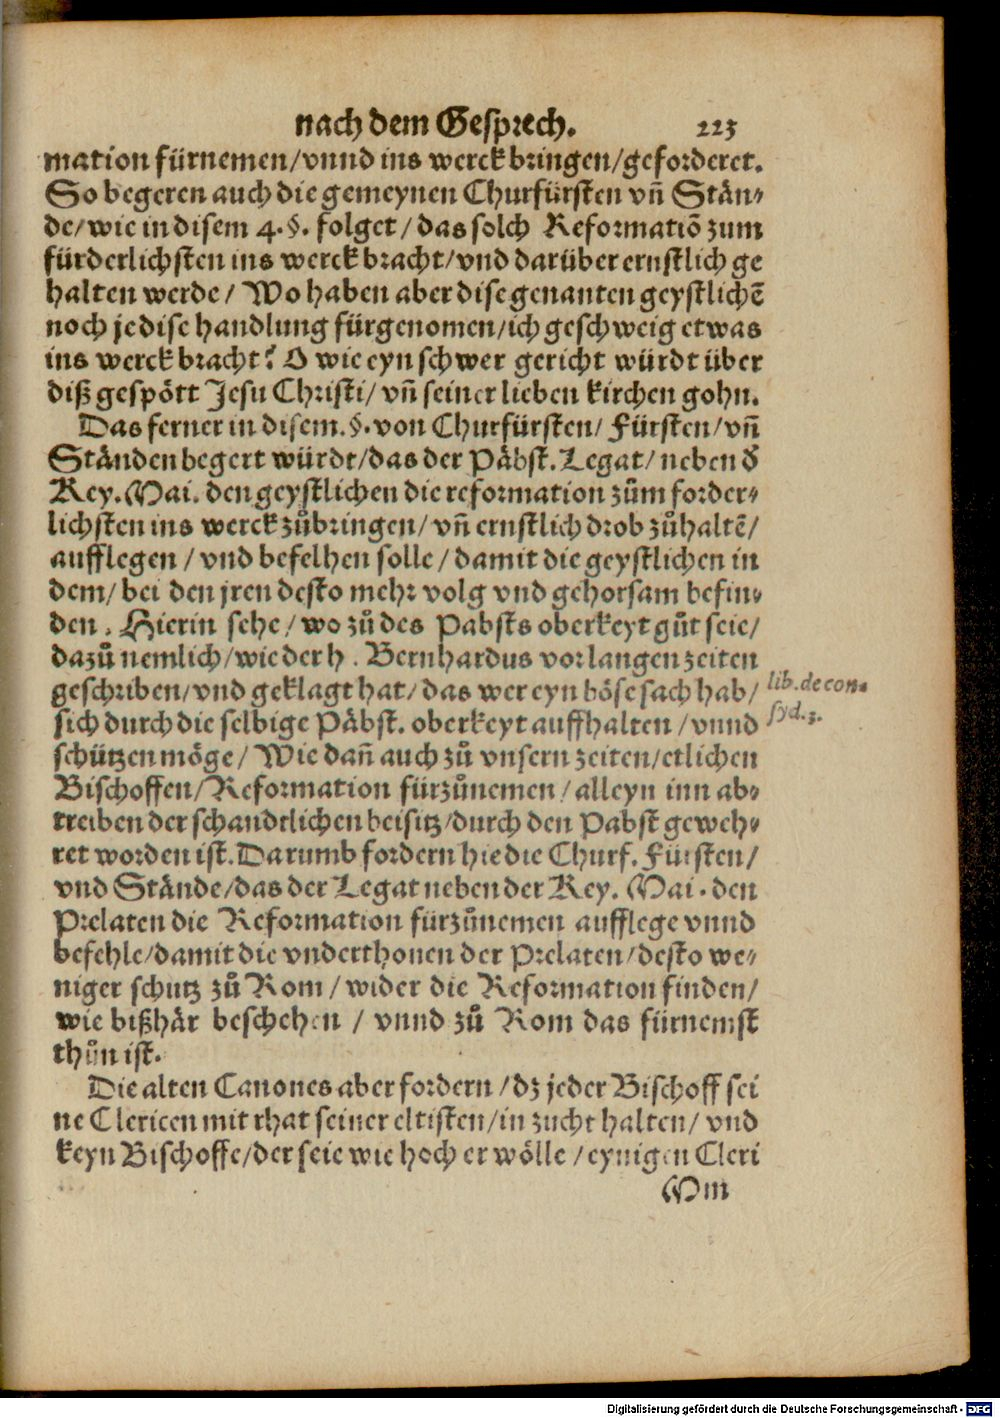 nach dem Gesprech. 223
mation fürnemen/vnnd ins werck bringen/geforderet.
So begeren auch die gemeynen Churfürsten vn̄ Stän⸗
de/wie in disem 4.§. folget/das solch Reformatiō zum
fürderlichsten ins werck bracht/vnd darüber ernstlich ge
halten werde/ Wo haben aber dise genanten geystlichē
noch je dise handlung fürgenomen/ich geschweig etwas
ins werck bracht? O wie eyn schwer gericht würdt über
diß gespött Jesu Christi/ vn̄ seiner lieben kirchen gohn.
Das ferner in disem.§. von Churfürsten/ Fürsten/vn̄
Ständen begert würdt/das der Päbst. Legat/ neben d̕
Key. Mai. den geystlichen die reformation zům forder⸗
lichsten ins werck zůbringen/ vn̄ ernstlich drob zůhaltē/
aufflegen/vnd befelhen solle/damit die geystlichen in
dem/ bei den jren desto mehr volg vnd gehorsam befin⸗
den. Hierin sehe/wo zů des Pabsts oberkeyt gůt seie/
dazů nemlich/wie der h. Bernhardus vor langen zeiten
geschriben/vnd geklagt hat/das wer eyn böse sach hab/
lib. de con⸗
syd. 3.
sich durch die selbige Päbst. oberkeyt auffhalten/vnnd
schützen möge/ Wie dan̄ auch zů vnsern zeiten/etlichen
Bischoffen/Reformation fürzůnemen/alleyn inn ab⸗
treiben der schandtlichen beisitz/durch den Pabst geweh⸗
ret worden ist. Darumb fordern hie die Churf. Fürsten/
vnd Stände/das der Legat neben der Key. Mai. den
Prelaten die Reformation fürzůnemen aufflege vnnd
befehle/damit die vnderthonen der Prelaten/desto we⸗
niger schutz zů Rom/wider die Reformation finden/
wie bißhär beschehen/ vnnd zů Rom das fürnemst
thůn ist.
Die alten Canones aber fordern/dz jeder Bischoff sei
ne Clericen mit rhat seiner eltisten/in zucht halten/ vnd
keyn Bischoffe/der seie wie hoch er wölle/eynigen Cleri
Mm
Digitalisierung gefördert durch die Deutsche Forschungsgemeinschaft - DFG